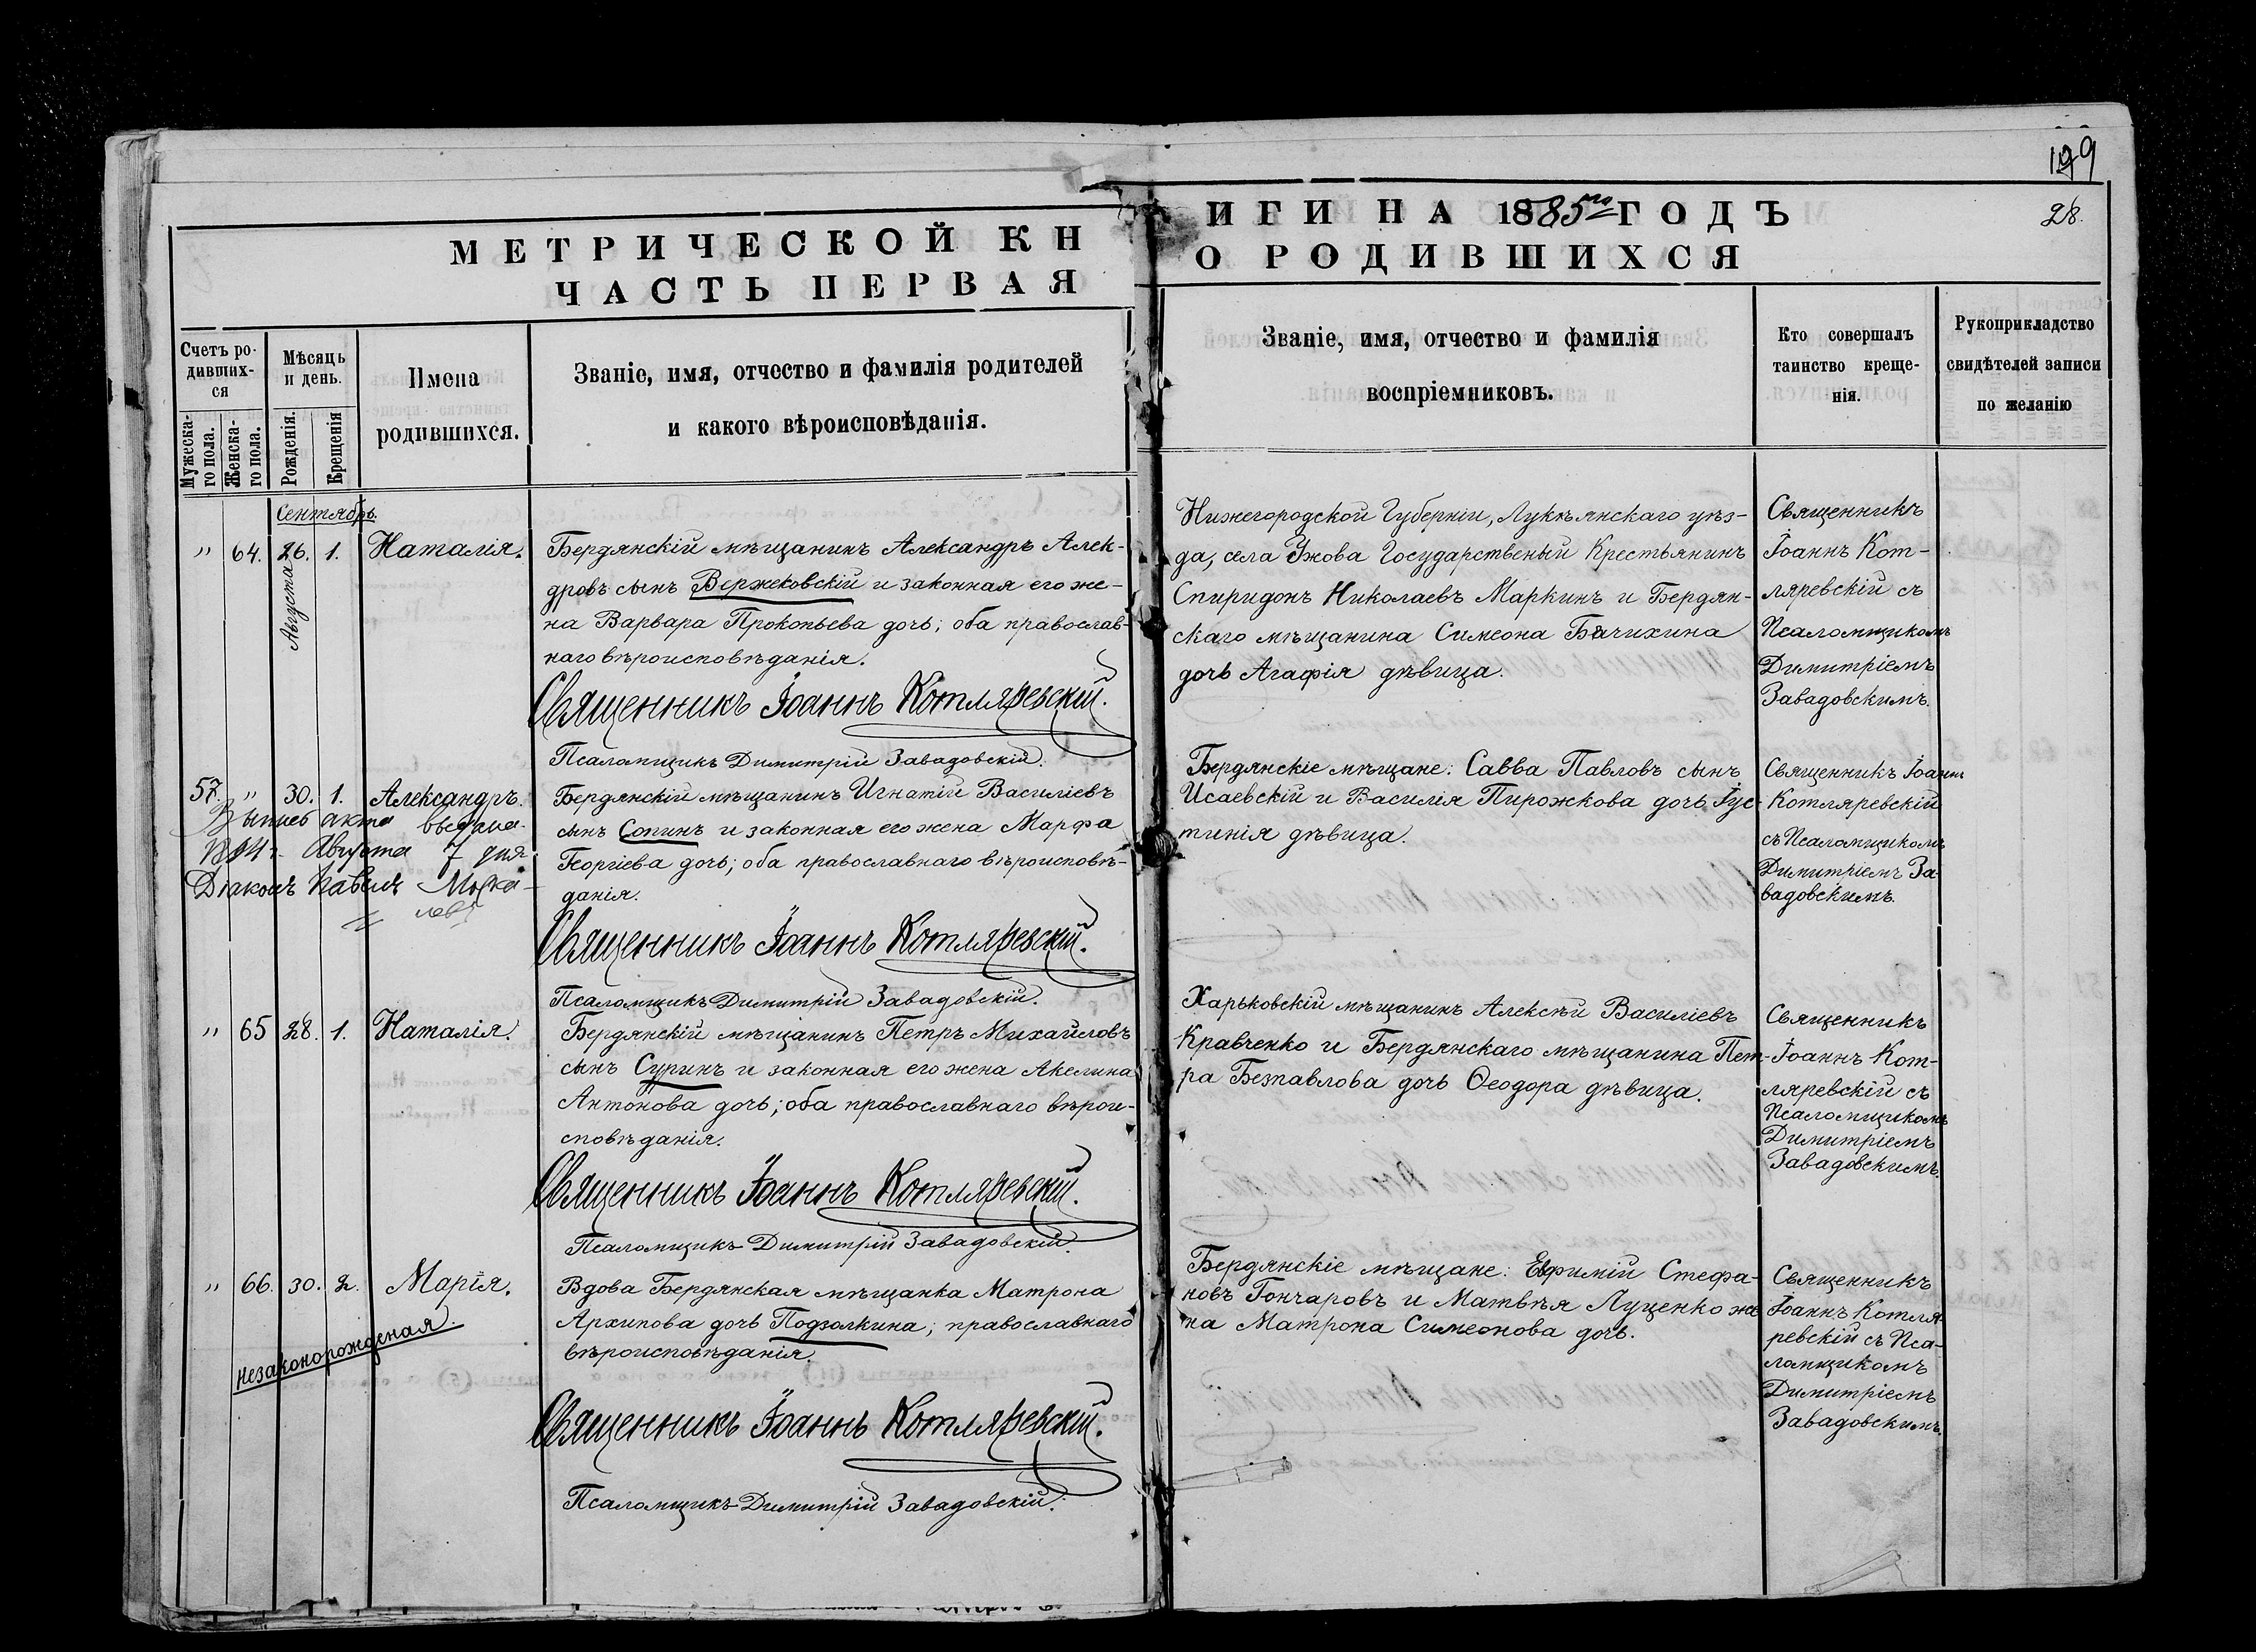 199
28.
МЕТРИЧЕСКОЙ КН
ИГИ НА 1885го ГОДЪ
ЧАСТЬ ПЕРВАЯ
О РОДИВШИХСЯ
Счетъ ро-
дивших-
ся
Мужеска-
го пола.
Женска-
го пола.
Мѣсяцъ
и день.
Рожденія.
Крещенія
Имена
родившихся.
Званіе, имя, отчество и фамилія родителей
и какого вѣроисповѣданія.
Званіе, имя, отчество и фамилія
воспріемниковъ.
Кто совершалъ
таинство креще-
нія.
Рукоприкладство
свидѣтелей записи
по желанію
Сентябрь.
" 64. 26. 1. Наталія.
Августа
Бердянскій мѣщанинъ Александръ Алек-
дровъ сынъ Вержековскій и законная его же-
на Варвара Прокопьева дочь; оба православ-
наго вѣроисповѣданія.
Священникъ Іоаннъ Котляревскій.
Псаломщикъ Димитрій Завадовскій.
Нижегородской Губерніи, Лукъянскаго уѣз-
да, села Ужова Государственый Крестьянинъ
Спиридонъ Николаевъ Маркинъ и Бердян-
скаго мѣщанина Симеона Бачихина
дочь Агафія дѣвица.
Священникъ
Іоаннъ Кот-
ляревскій съ
Псаломщикомъ
Димитріемъ
Завадовскимъ.
57. " 30. 1. Александръ.
Выпись акта выдана
1914 г. Августа 7 дня
Діаконъ Павелъ Моска-
левъ
Бердянскій мѣщанинъ Игнатій Василіевъ
сынъ Сопинъ и законная его жена Марфа
Георгіева дочь; оба православнаго вѣроисповѣ-
данія.
Священникъ Іоаннъ Котляревскій.
Псаломщикъ Димитрій Завадовскій.
Бердянскіе мѣщане: Савва Павловъ сынъ
Исаевскій и Василія Пирожкова дочь Іус-
тинія дѣвица.
Священникъ Іоаннъ
Котляревскій
съ Псаломщикомъ
Димитріемъ За-
вадовскимъ.
" 65 28. 1. Наталія.
Бердянскій мѣщанинъ Петръ Михайловъ
сынъ Суринъ и законная его жена Акелина
Антонова дочь; оба православнаго вѣрои-
сповѣданія.
Священникъ Іоаннъ Котляревскій.
Псаломщикъ Димитрій Завадовскій.
Харьковскій мѣщанинъ Алексѣй Василіевъ
Кравченко и Бердянскаго мѣщанина Пет-
ра Безпавлова дочь Ѳеодора дѣвица.
Священникъ
Іоаннъ Кот-
ляревскій съ
Псаломщикомъ
Димитріемъ
Завадовскимъ.
" 66. 30. 2. Марія.
незаконорожденая.
Вдова Бердянская мѣщанка Матрона
Архипова дочь Подзолкина; православнаго
вѣроисповѣданія.
Священникъ Іоаннъ Котляревскій.
Псаломщикъ Димитрій Завадовскій.
Бердянскіе мѣщане: Евфимій Стефа-
новъ Гончаровъ и Матвѣя Луценко же
на Матрона Симеонова дочь.
Священникъ
Іоаннъ Котля-
ревскій съ Пса-
ломщикомъ
Димитріемъ
Завадовскимъ.